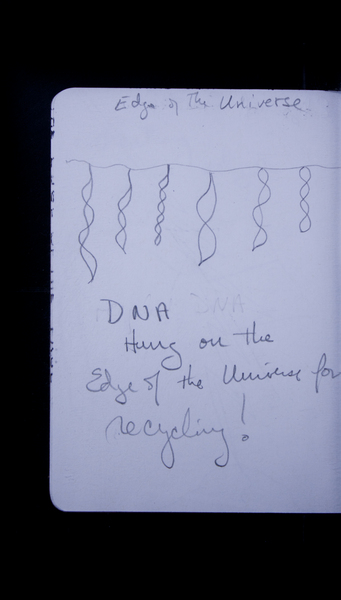 Edge of The Universe
DNA
Hung on the
Edge of the Universe for
recycling!